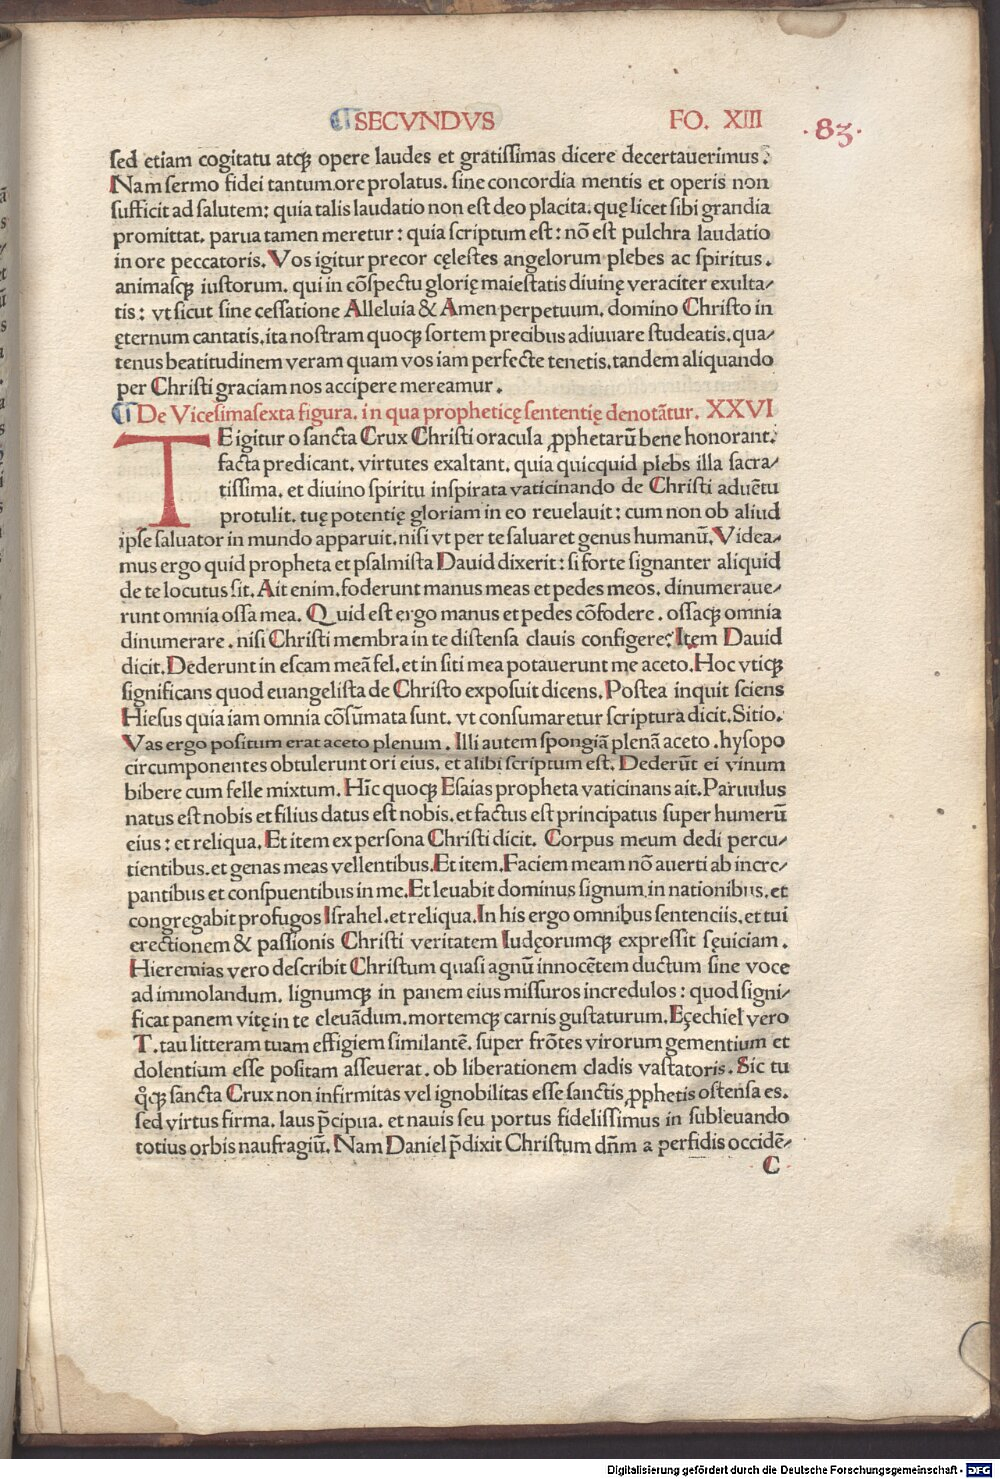 ¶SECVNDVS FO. XIII
·83·
sed etiam cogitatu atqꝫ opere laudes et gratissimas dicere decertauerimus:
Nam sermo fidei tantum ore prolatus. sine concordia mentis et operis non
sufficit ad salutem: quia talis laudatio non est deo placita. quę licet sibi grandia
promittat. parua tamen meretur: quia scriptum est: nō est pulchra laudatio
in ore peccatoris. Vos igitur precor cęlestes angelorum plebes ac spiritus.
animasqꝫ iustorum. qui in cōspectu glorię maiestatis diuinę veraciter exulta/
tis: vt sicut sine cessatione Alleluia & Amen perpetuum. domino Christo in
ęternum cantatis. ita nostram quoqꝫ sortem precibus adiuuare studeatis. qua/
tenus beatitudinem veram quam vos iam perfecte tenetis. tandem aliquando
per Christi graciam nos accipere mereamur.
¶De Vicesimasexta figura. in qua propheticę sententię denotātur. XXVI
TE igitur o sancta Crux Christi oracula ꝓphetarū bene honorant.
facta predicant. virtutes exaltant. quia quicquid plebs illa sacra/
tissima. et diuino spiritu inspirata vaticinando de Christi aduētu
protulit. tuę potentię gloriam in eo reuelauit: cum non ob aliud
ipse saluator in mundo apparuit. nisi vt per te saluaret genus humanū. Videa/
mus ergo quid propheta et psalmista Dauid dixerit: si forte signanter aliquid
de te locutus sit. Ait enim. foderunt manus meas et pedes meos. dinumeraue/
runt omnia ossa mea. Quid est ergo manus et pedes cōfodere. ossaqꝫ omnia
dinumerare. nisi Christi membra in te distensa clauis configere? Item Dauid
dicit. Dederunt in escam meā fel. et in siti mea potauerunt me aceto. Hoc vtiqꝫ
significans quod euangelista de Christo exposuit dicens. Postea inquit sciens
Hiesus quia iam omnia cōsūmata sunt. vt consumaretur scriptura dicit. Sitio.
Vas ergo positum erat aceto plenum. Illi autem spongiā plenā aceto. hysopo
circumponentes obtulerunt ori eius. et alibi scriptum est. Dederūt ei vinum
bibere cum felle mixtum. Hīc quoqꝫ Esaias propheta vaticinans ait. Paruulus
natus est nobis et filius datus est nobis. et factus est principatus super humerū
eius: et reliqua. Et item ex persona Christi dicit. Corpus meum dedi percu/
tientibus. et genas meas vellentibus. Et item. Faciem meam nō auerti ab incre/
pantibus et conspuentibus in me. Et leuabit dominus signum in nationibus. et
congregabit profugos Israhel. et reliqua. In his ergo omnibus sentenciis. et tui
erectionem & passionis Christi veritatem Iudęorumqꝫ expressit sęuiciam.
Hieremias vero describit Christum quasi agnū innocētem ductum sine voce
ad immolandum. lignumqꝫ in panem eius missuros incredulos: quod signi/
ficat panem vitę in te eleuādum. mortemqꝫ carnis gustaturum. Eȩechiel vero
T. tau litteram tuam effigiem similantē. super frōtes virorum gementium et
dolentium esse positam asseuerat. ob liberationem cladis vastatoris. Sic tu
q̊qꝫ sancta Crux non infirmitas vel ignobilitas esse sanctis ꝓphetis ostensa es.
sed virtus firma. laus p̄cipua. et nauis seu portus fidelissimus in subleuando
totius orbis naufragiū. Nam Daniel p̄dixit Christum dn̄m a perfidis occidē/
C
Digitalisierung gefördert durch die Deutsche Forschungsgemeinschaft - DFG